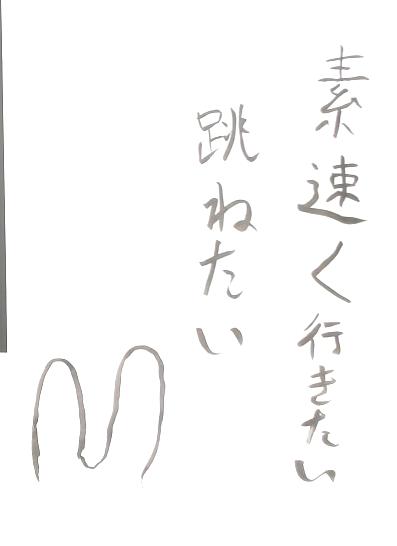 素速く行きたい
跳ねたい